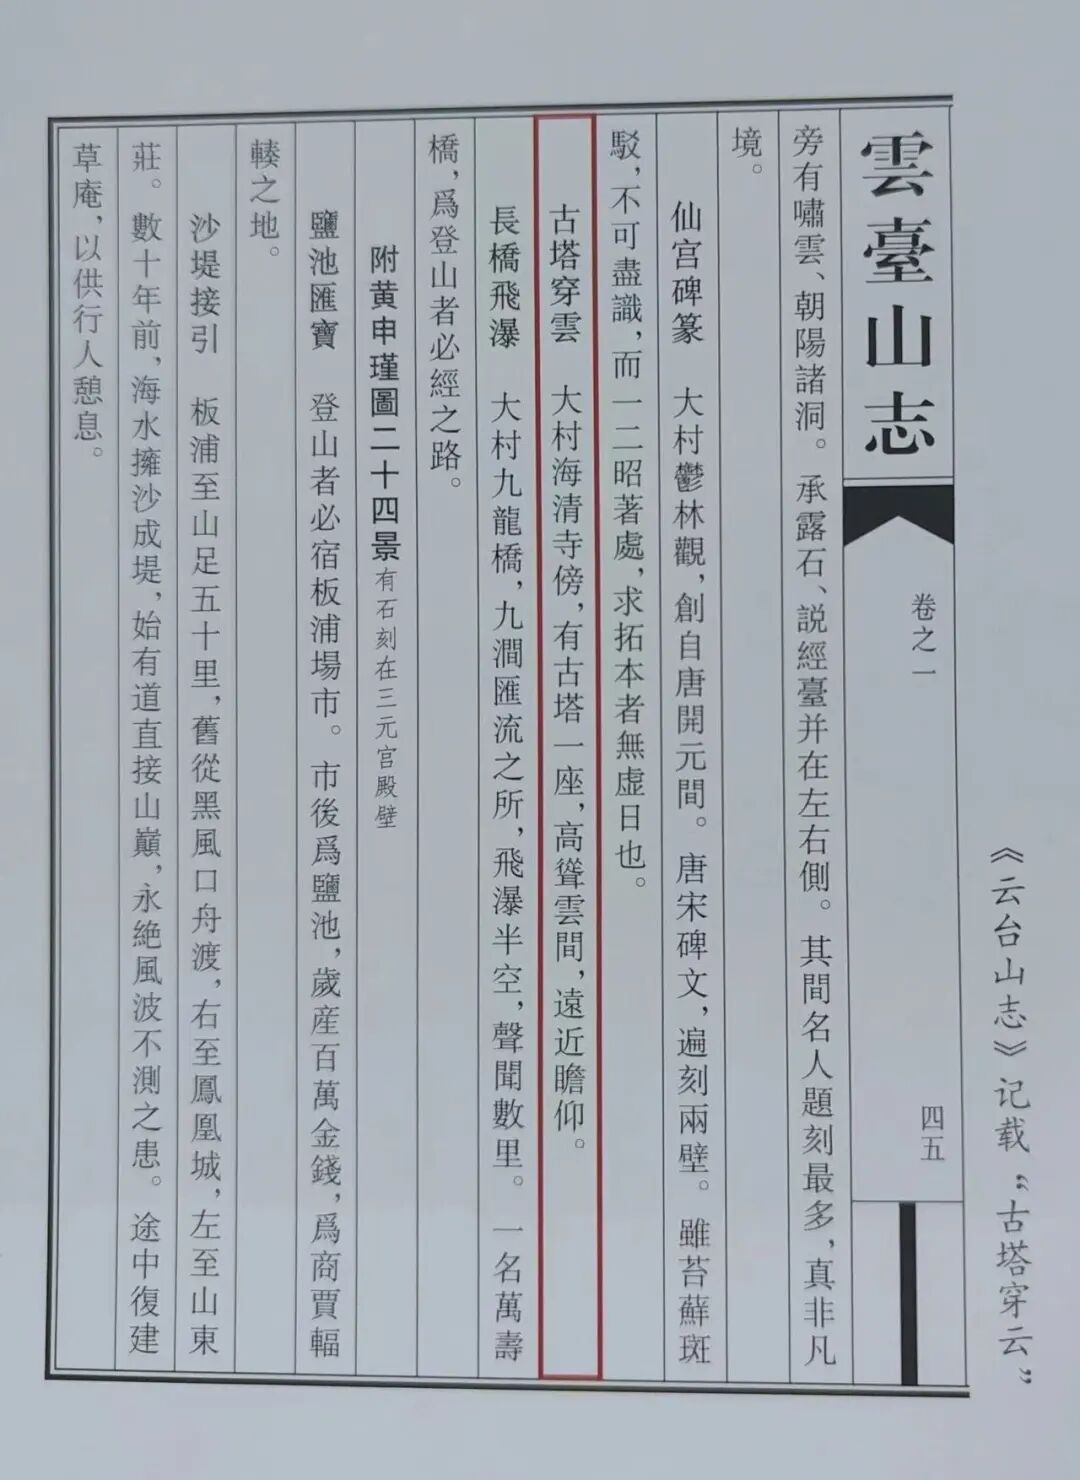 《云台山志》记载“古塔穿云”
雲臺山志
卷之一
四五
旁有嘯雲、朝陽諸洞。承露石、説經臺并在左右側。其間名人題刻最多，真非凡
境。
仙宫碑篆　大村鬱林觀，創自唐開元間。唐宋碑文，遍刻兩壁。雖苔蘚斑
駁，不可盡識，而一二昭著處，求拓本者無虚日也。
古塔穿雲　大村海清寺傍，有古塔一座，高聳雲間，遠近瞻仰。
長橋飛瀑　大村九龍橋，九澗匯流之所，飛瀑半空，聲聞數里。一名萬壽
橋，爲登山者必經之路。
附黄申瑾圖二十四景有石刻在三元宫殿壁
鹽池匯寶　登山者必宿板浦場市。市後爲鹽池，歲産百萬金錢，爲商賈輻
輳之地。
沙堤接引　板浦至山足五十里，舊從黑風口舟渡，右至鳳凰城，左至山東
莊。數十年前，海水擁沙成堤，始有道直接山巔，永絶風波不測之患。途中復建
草庵，以供行人憩息。